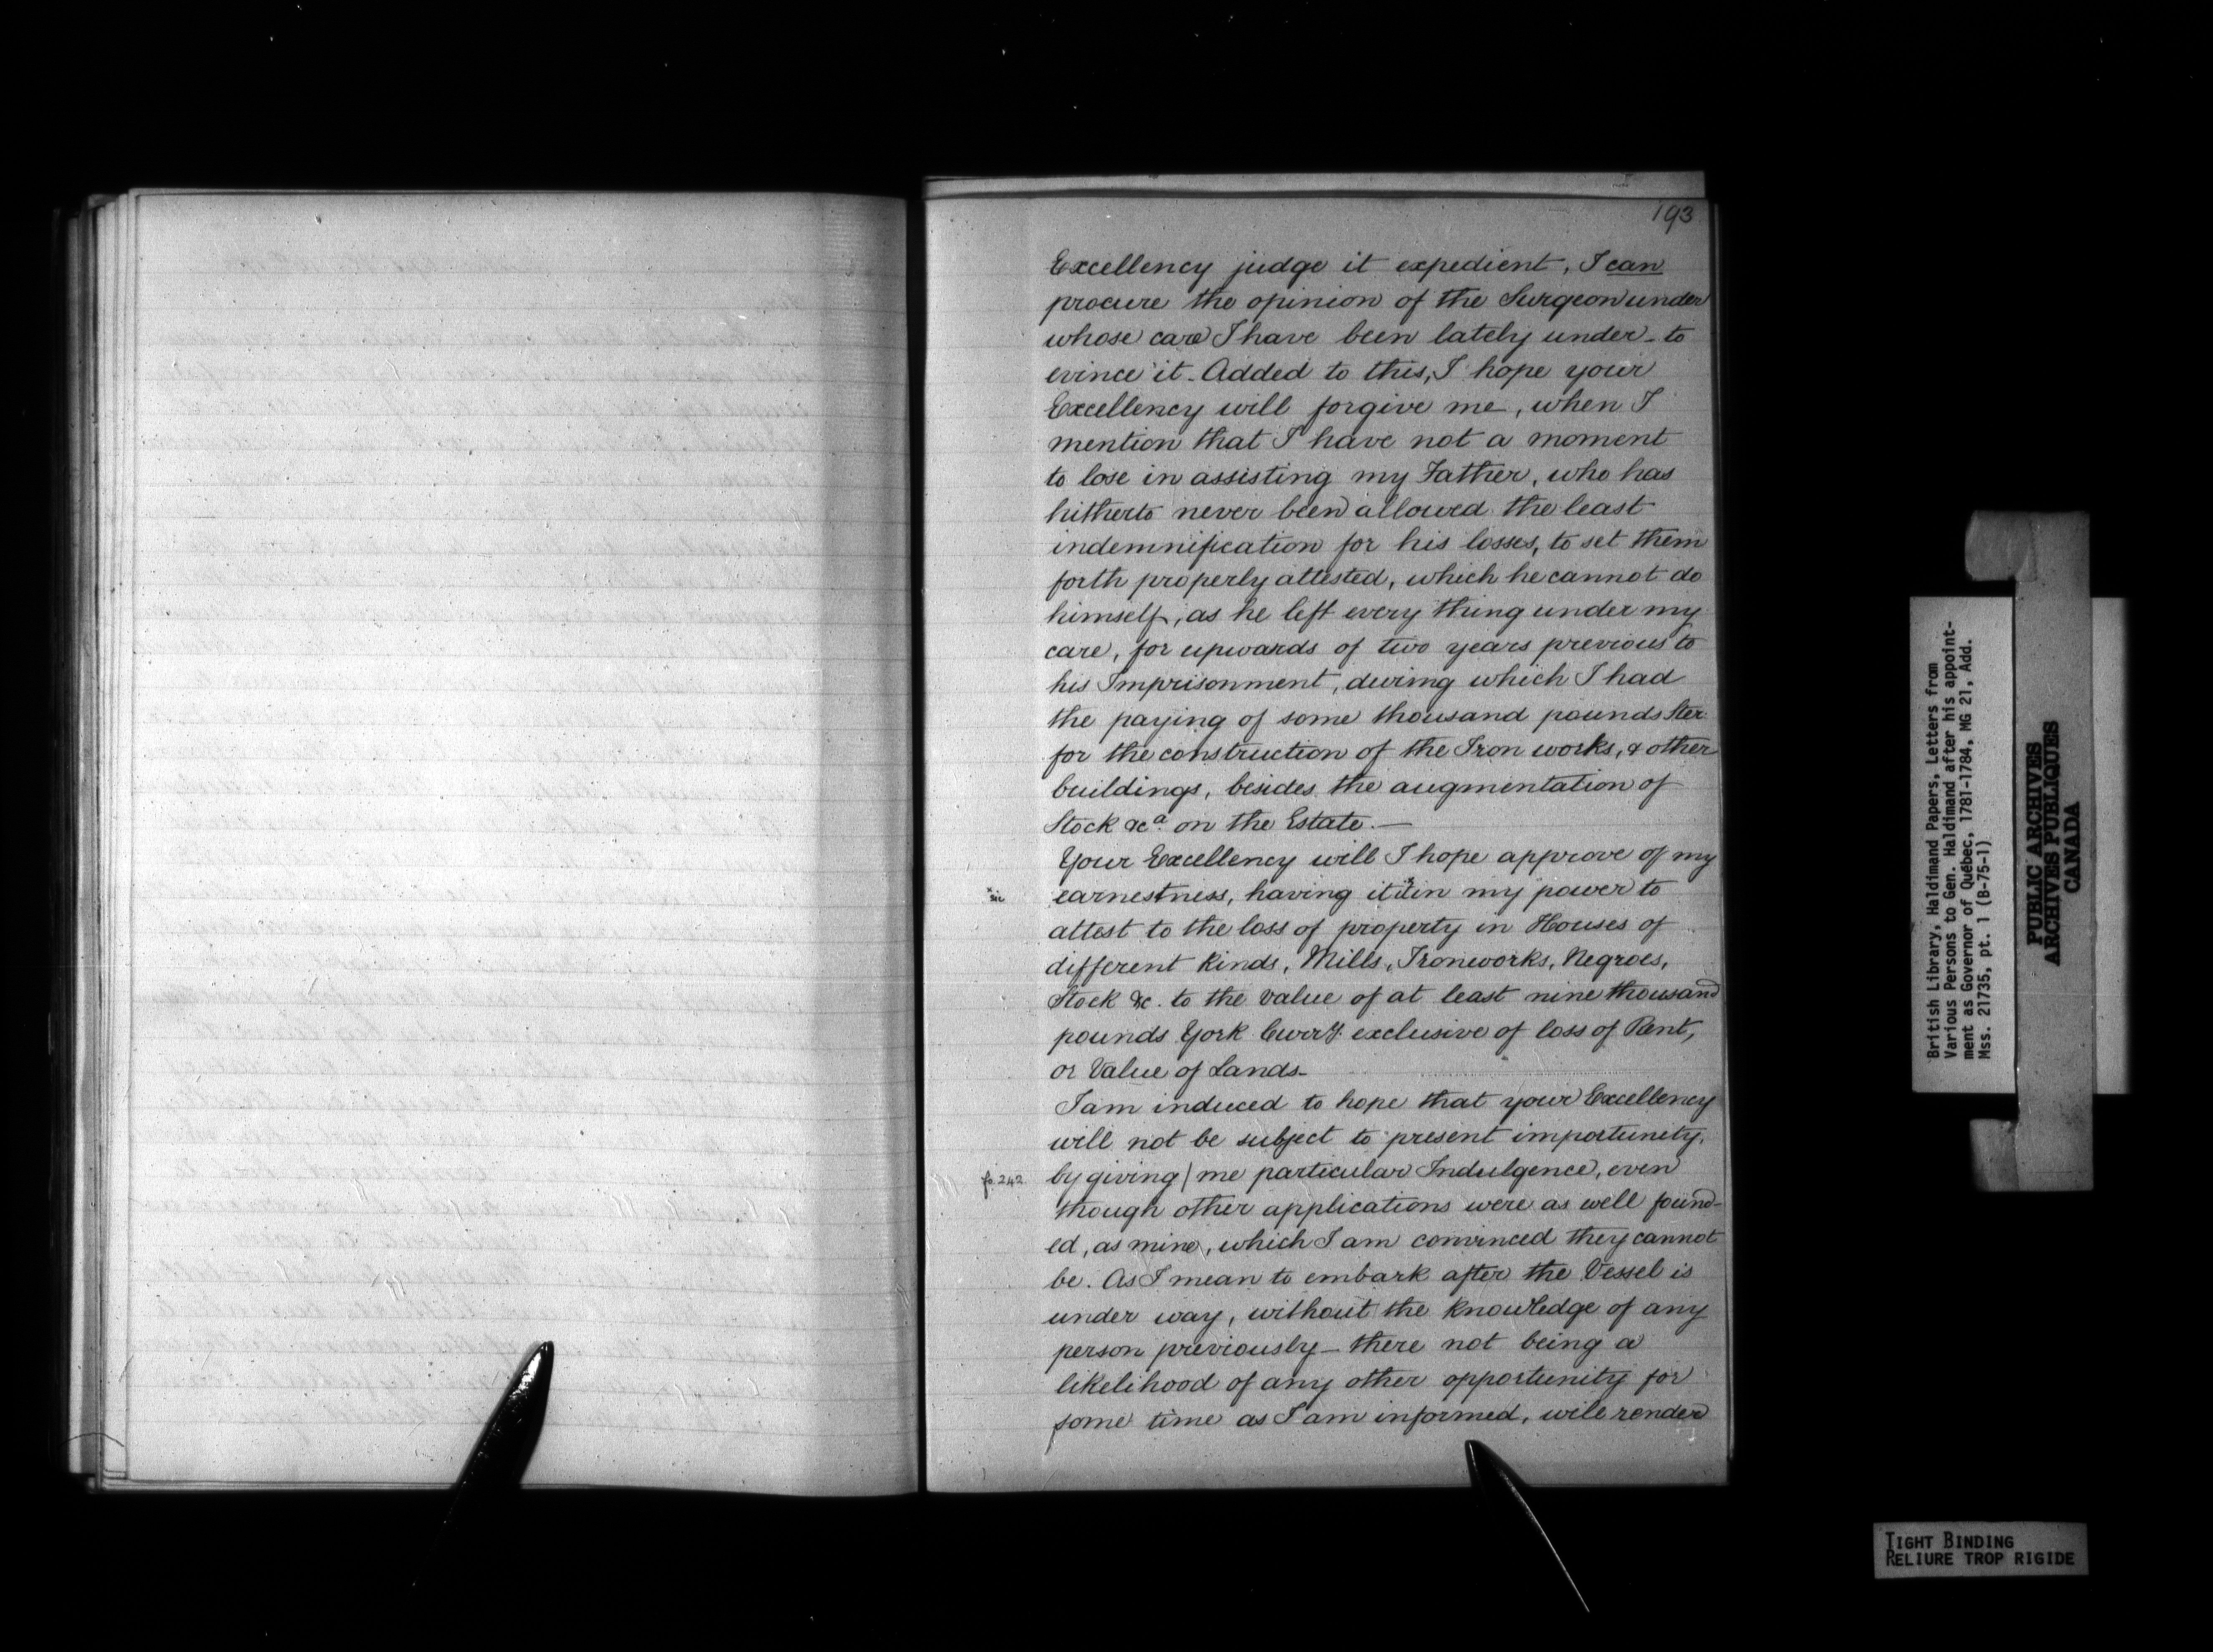 193
Excellency judge it expedient, I can
procure the opinion of the Surgeon under
whose care I have been lately under - to
evince it - Added to this, I hope your
Excellency will forgive me, when I
mention that I have not a moment
to lose in assisting my Father, who has
hitherto never been allowed the least
indemnification for his losses, to set them
forth properly attested, which he cannot do
himself, as he left every thing under my
care, for upwards of two years previous to
his Imprisonment, during which I had
the paying of some thousand pounds Ster.
for the construction of the Iron works, & other
buildings, besides the augmentation of
Stock &cª. on the Estate. —
Your Excellency will I hope approve of my
x sic earnestness, having it it x in my power to
attest to the loss of property in Houses of
different kinds, Mills, Ironworks, Negroes,
Stock &c. to the value of at least nine thousand
pounds York Curry. exclusive of loss of Rent,
or Value of Lands -
I am induced to hope that your Excellency
will not be subject to present importunity,
fo. 242 by giving / me particular Indulgence, even
though other applications were as well found-
ed, as mine, which I am convinced they cannot
be. As I mean to embark after the Vessel is
under way, without the knowledge of any
person previously - there not being a
likelihood of any other opportunity for
some time as I am informed, will render
British Library, Haldimand Papers, Letters from
Various Persons to Gen. Haldimand after his appoint-
ment as Governor of Québec, 1781-1784, MG 21, Add.
Mss. 21735, pt. 1 (B-75-1)
PUBLIC ARCHIVES
ARCHIVES PUBLIQUES
CANADA
TIGHT BINDING
RELIURE TROP RIGIDE